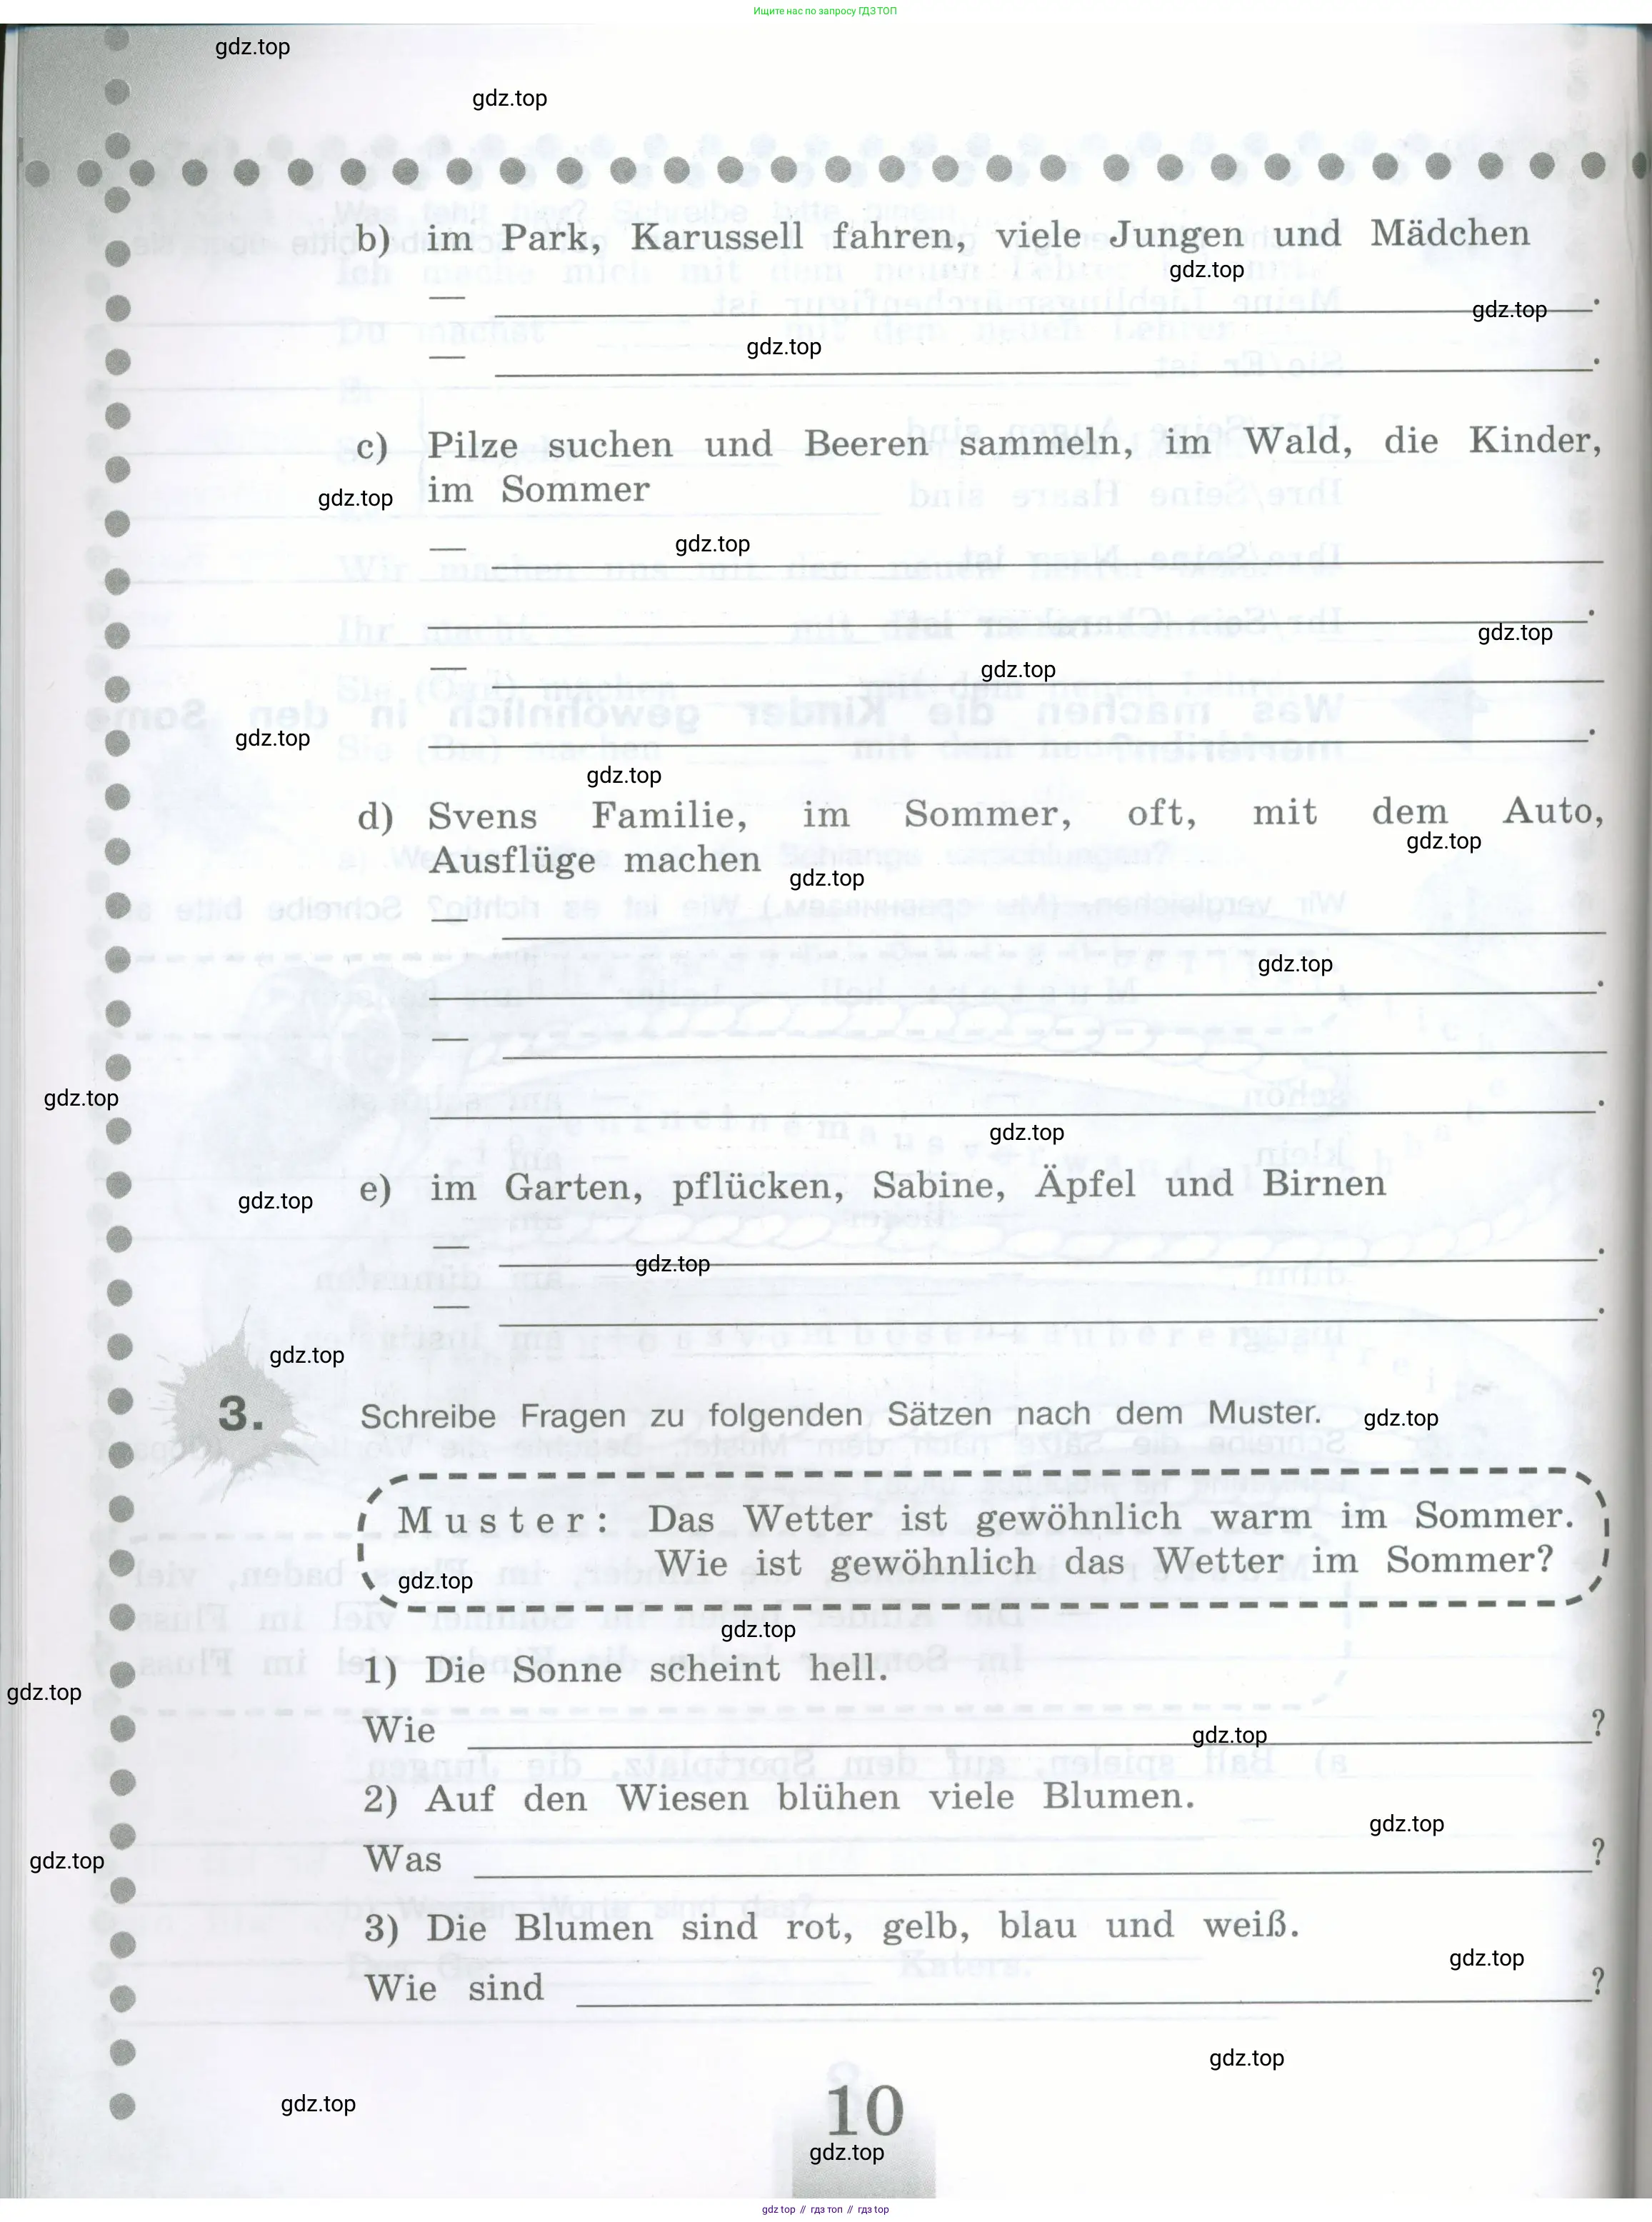 Ищите нас по запросу ГДЗ ТОП
gdz.top
gdz.top
b) im Park, Karussell fahren, viele Jungen und Mädchen
gdz.top
— .
gdz.top
— .
gdz.top
c) Pilze suchen und Beeren sammeln, im Wald, die Kinder,
im Sommer
gdz.top
—
gdz.top
.
gdz.top
—
gdz.top
.
gdz.top
gdz.top
d) Svens Familie, im Sommer, oft, mit dem Auto,
gdz.top
Ausflüge machen
gdz.top
—
gdz.top
.
—
gdz.top
.
gdz.top
e) im Garten, pflücken, Sabine, Äpfel und Birnen
gdz.top
— .
gdz.top
— .
gdz.top
3. Schreibe Fragen zu folgenden Sätzen nach dem Muster.
gdz.top
Muster: Das Wetter ist gewöhnlich warm im Sommer.
Wie ist gewöhnlich das Wetter im Sommer?
gdz.top
gdz.top
1) Die Sonne scheint hell.
gdz.top
Wie ?
gdz.top
2) Auf den Wiesen blühen viele Blumen.
gdz.top
Was ?
gdz.top
3) Die Blumen sind rot, gelb, blau und weiß.
gdz.top
Wie sind ?
gdz.top
gdz.top
10
gdz.top
gdz top // гдз топ // гдз top